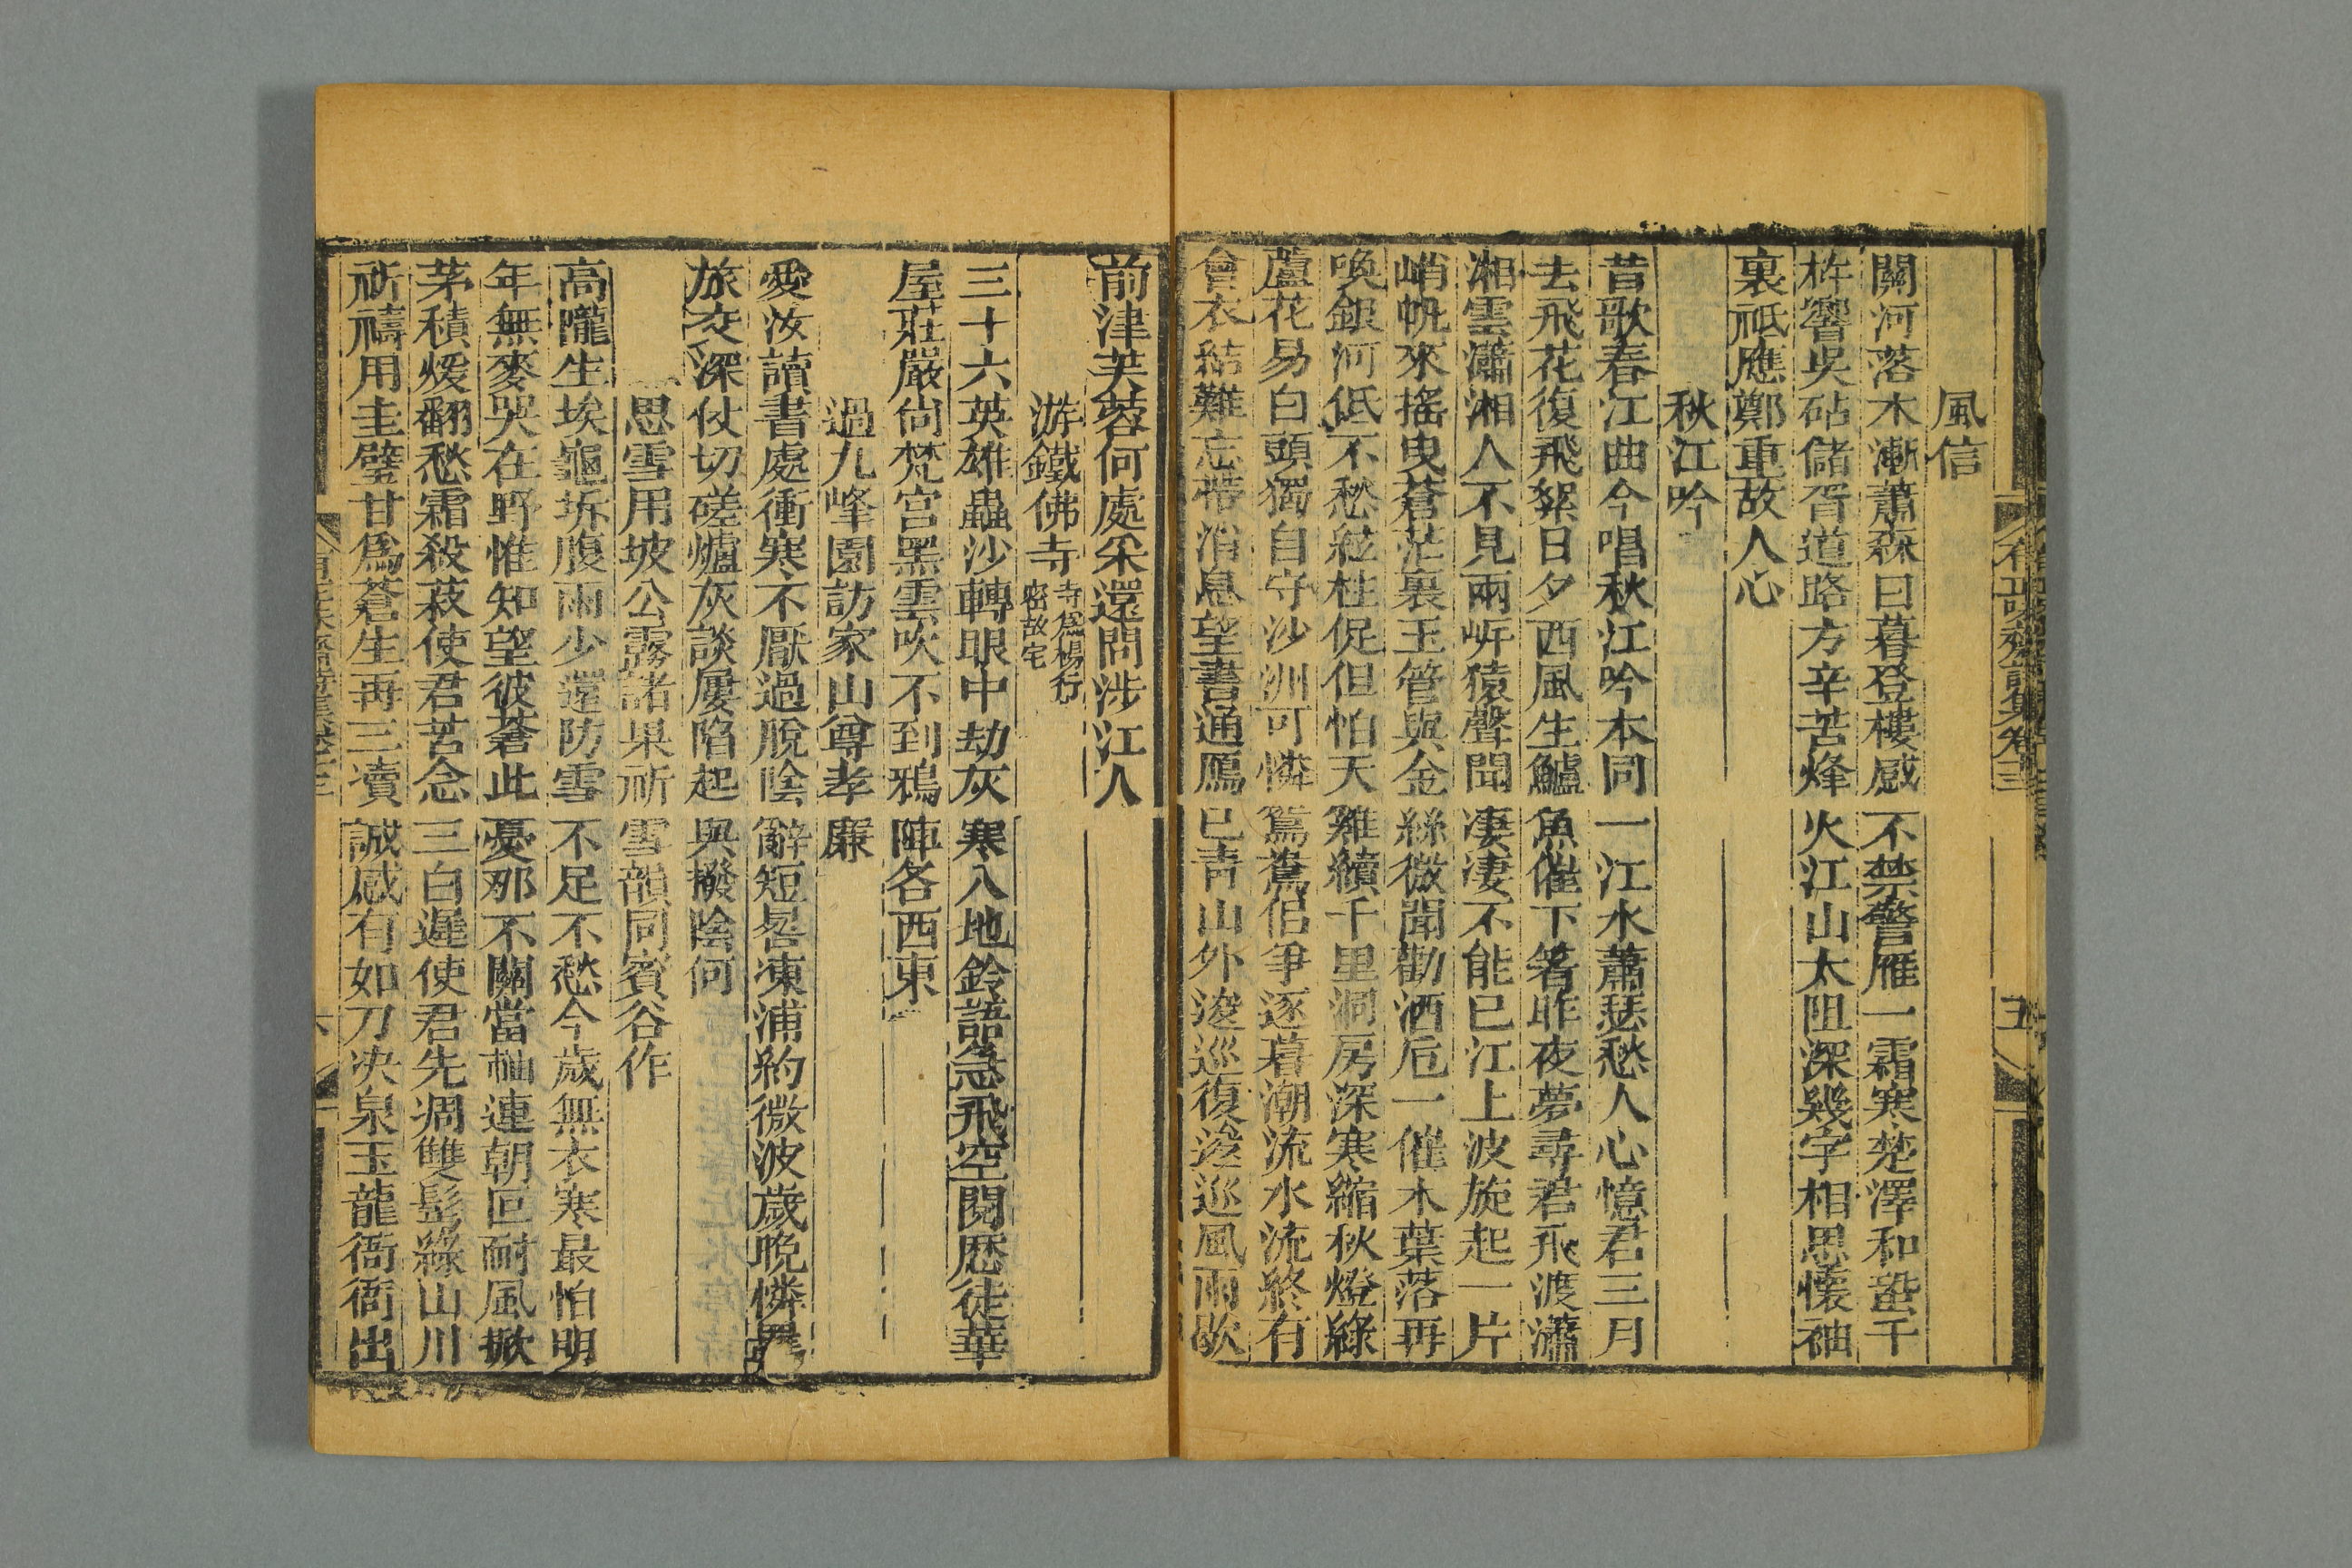 風信
關河落木漸蕭森日暮登樓感不禁警雁一霜寒楚澤和蛩千
杵響吳砧儲胥道路方辛苦烽火江山太阻深幾字相思懷袖
裏祗應鄭重故人心
秋江吟
昔歌春江曲今唱秋江吟本同一江水蕭瑟愁人心憶君三月
去飛花復飛絮日夕西風生鱸魚催下箸昨夜夢尋君飛渡瀟
湘雲瀟湘人不見兩岍猿聲聞淒淒不能已江上波旋起一片
峭帆來搖曳蒼茫裏玉管與金絲微聞勸酒卮一催木葉落再
喚銀河低不愁絃柱促但怕天難續千里洞房深寒縮秋燈綠
蘆花易白頭獨自守沙洲可憐鴛鴦侶爭逐暮潮流水流終有
會衣結難忘帶消息望書通鴈已青山外逡巡復逡巡風雨欹
前津芙蓉何處采還問涉江人
游鐵佛寺寺爲楊行密故宅
三十六英雄蟲沙轉眼中劫灰寒入地鈴語急飛空閱歷徒華
屋莊嚴尙梵宮黑雲吹不到鴉陣各西東
過九峰園訪家山尊孝廉
愛汝讀書處衝寒不厭過脫陰辭短晷凍浦約微波歲晚憐
旅交深仗切磋爐灰談屢陷起與撥陰何
思雪用坡公霧諸果祈雪韻同賓谷作
高隴生埃龜坼腹雨少還防雪不足不愁今歲無衣寒最怕明
年無麥哭在野惟知望彼蒼此憂那不關當軸連朝叵耐風掀
茅積煖翻愁霜殺菽使君苦念三白遲使君先凋雙髩綠山川
祈禱用圭璧甘爲蒼生再三瀆誠感有如刀决泉玉龍衙衙出